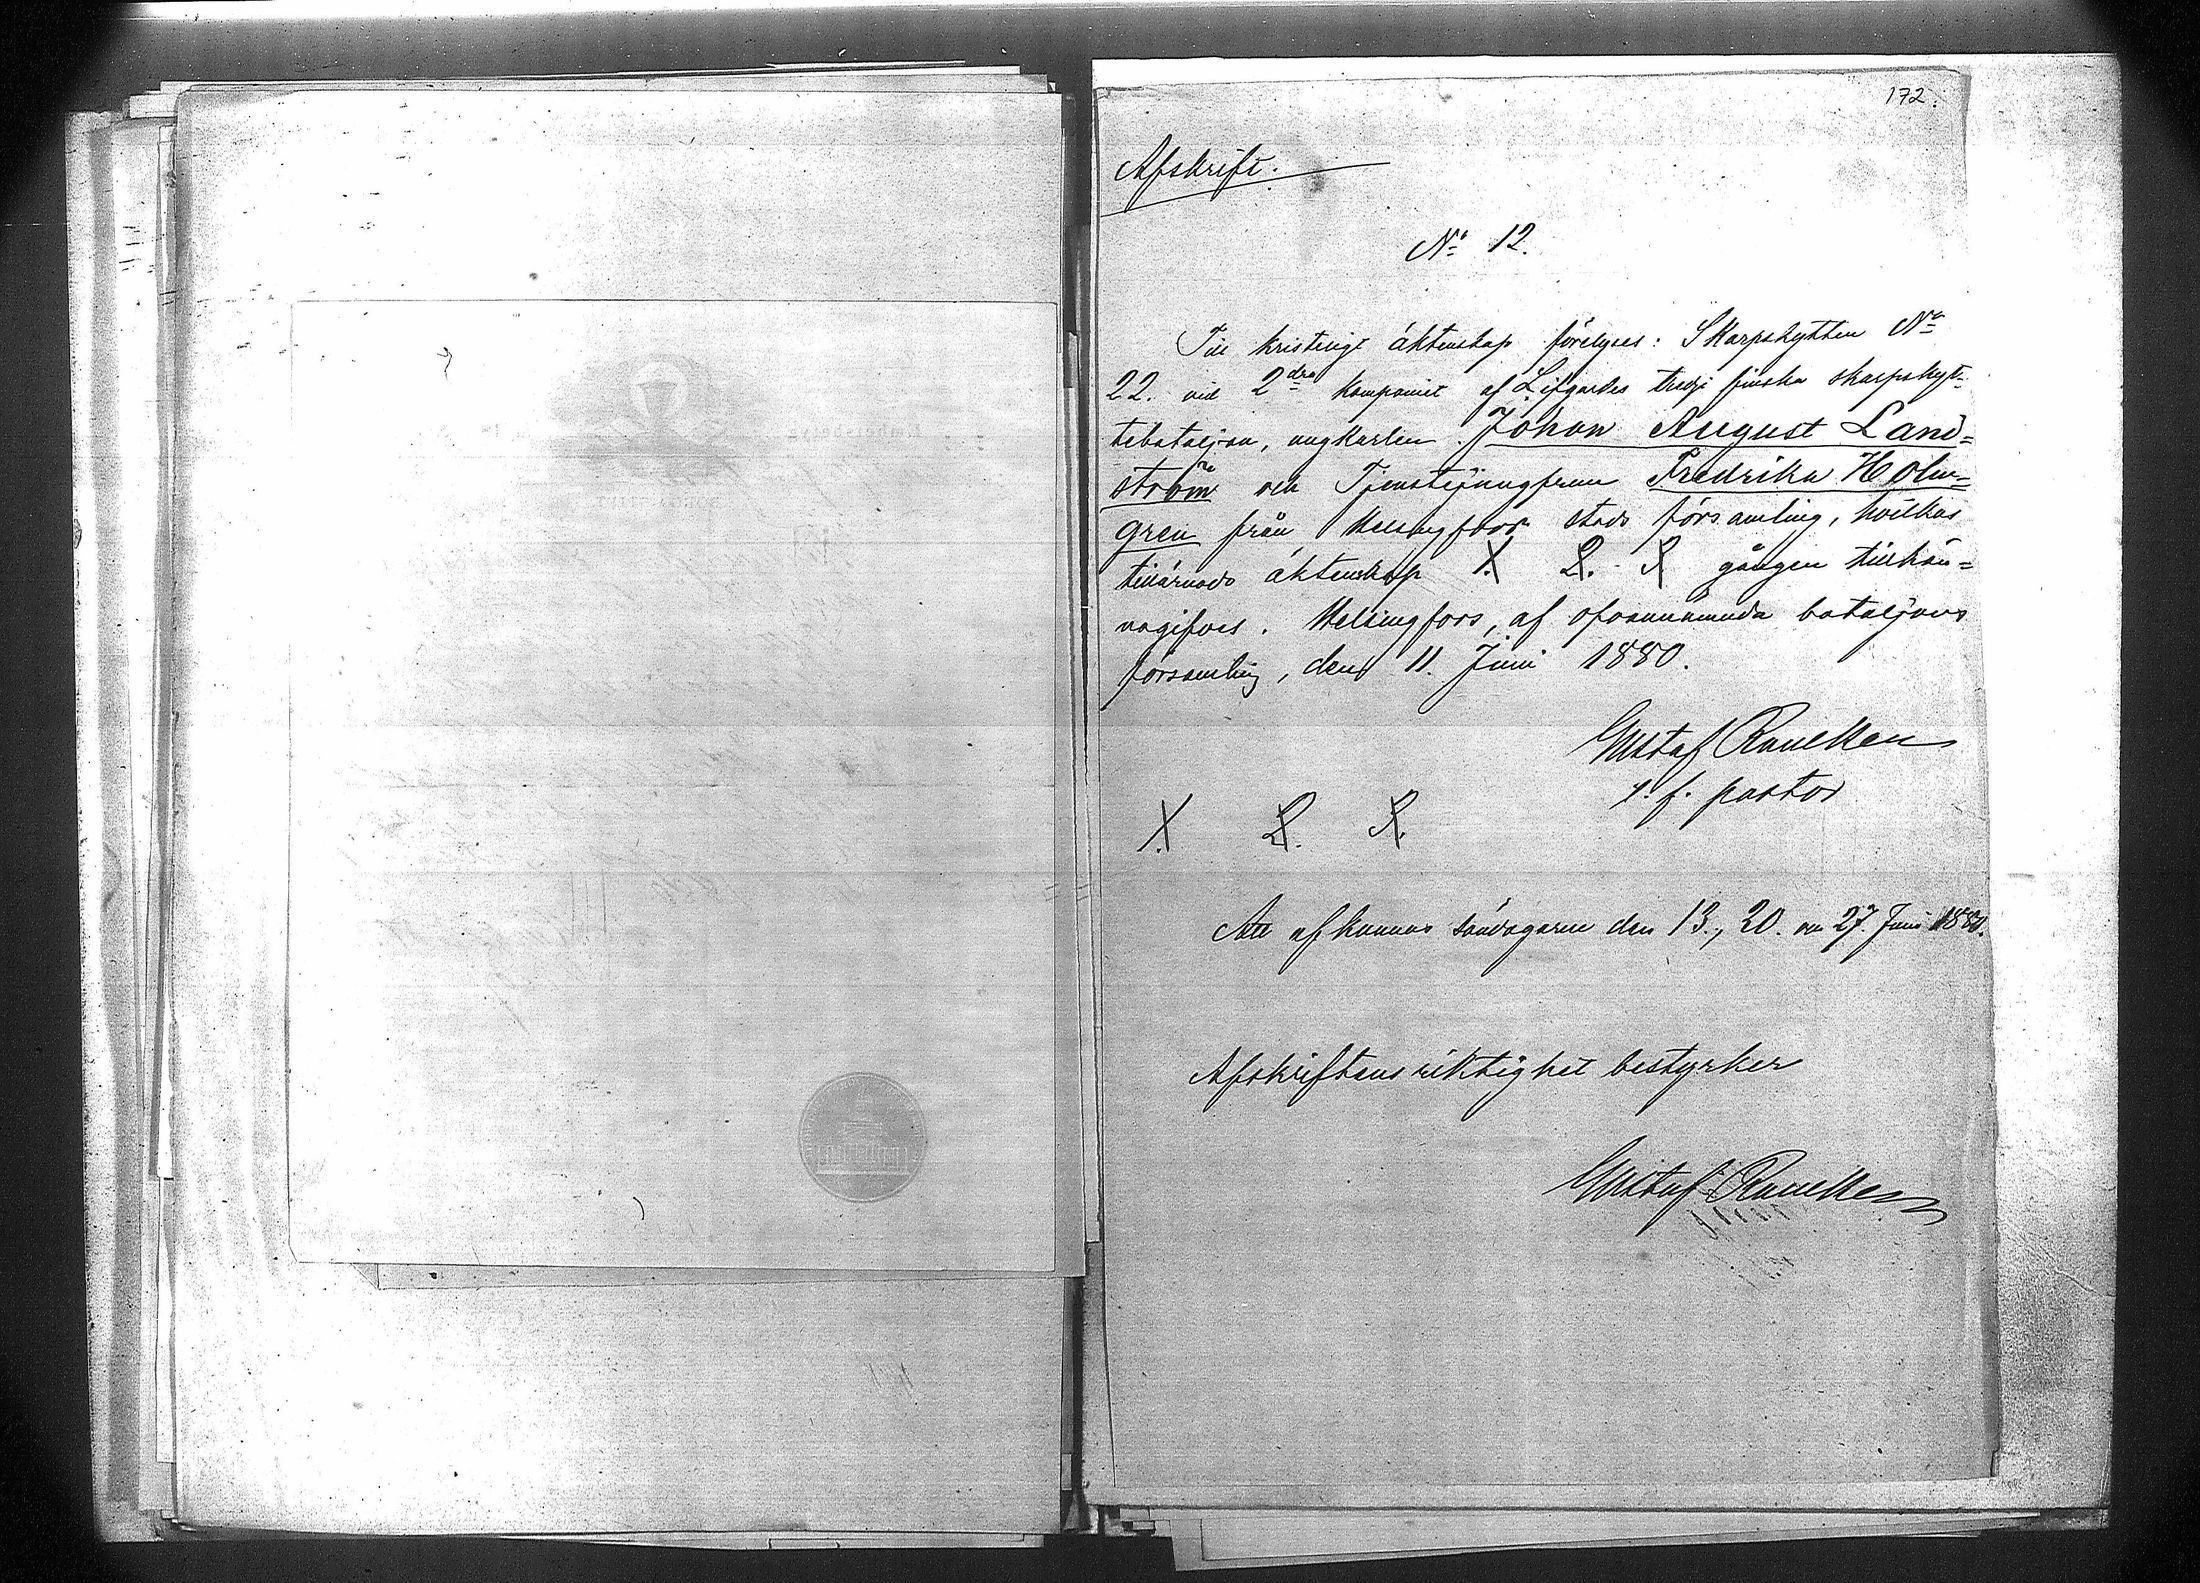 172.
Afskrift.
No 12.
Till kristligt äktenskap förelyses: Skarpskytten No
22. vid 2dra kompaniet af Lifgardes tredje finska skarpskyt-
tebataljon, ungkarlen Johan August Land=
ström och Tjenstejungfrun Fredrika Holm=
gren från Helsingfors stads församling, hvilkas
tillärnade äktenskap 1. 2. 3 gången tillkän=
nagifves. Helsingfors, af ofvannämnda bataljons
församling, den 11. Juni 1880.
Gustaf Rancken
t. f. pastor
1. 2. 3.
Att afkunnas söndagarne den 13., 20. och 27. Juni 1880.
Afskriftens riktighet bestyrker
Gustaf Rancken